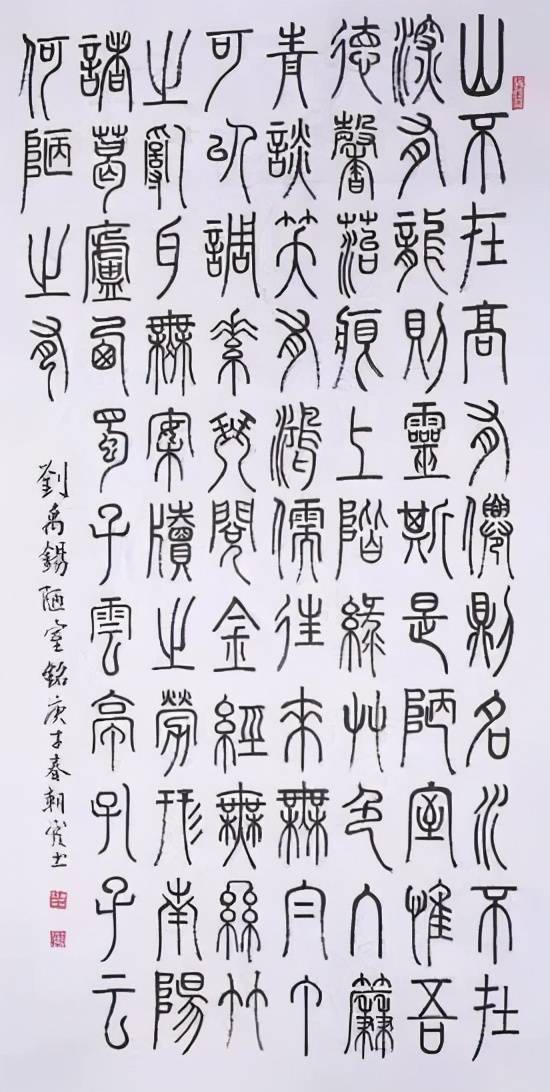 山不在高有僊則名水不在
深有龍則靈斯是陋室惟吾
德馨苔痕上階綠艸色入簾
青談笑有鴻儒往來無白丁
可以調素琴閱金經無絲竹
之亂耳無案牘之勞形南陽
諸葛廬西蜀子雲亭孔子云
何陋之有
劉禹錫陋室銘庚子春朝霞书